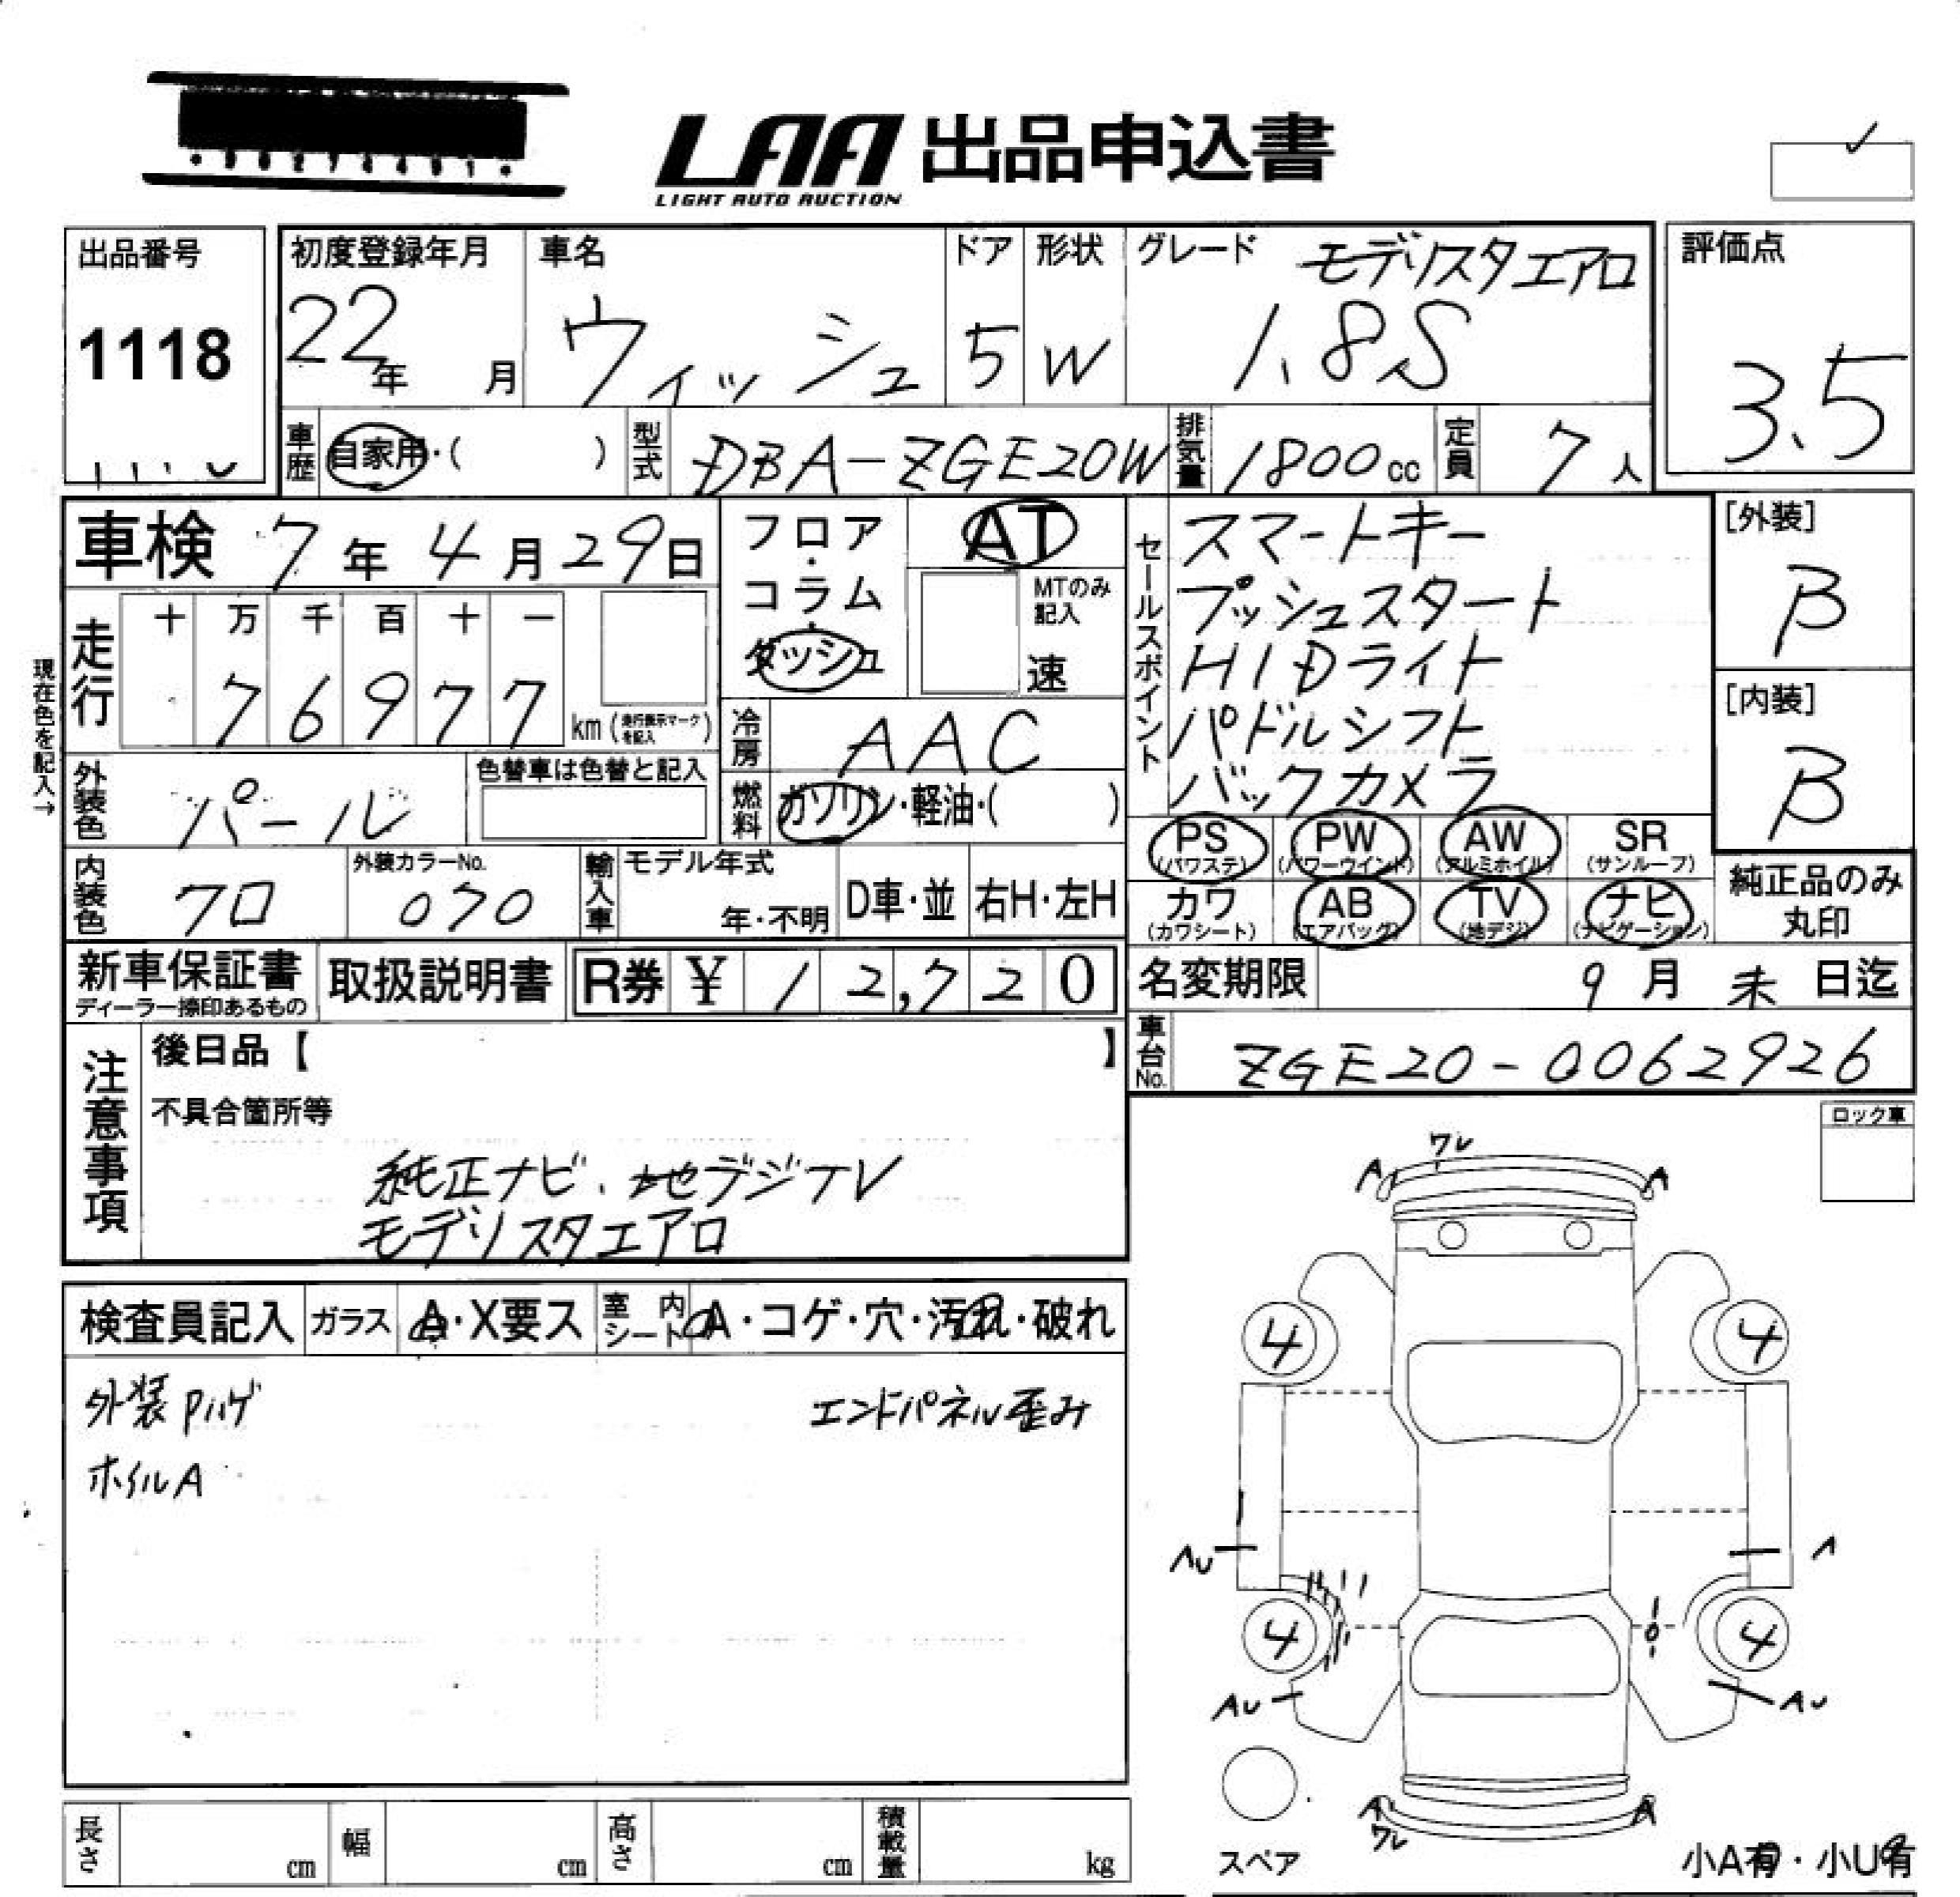 LAA 出品申込書
LIGHT AUTO AUCTION
出品番号
1118
初度登録年月
22年 月
車名
ウィッシュ
ドア
5
形状
W
グレード
モデリスタエアロ
1.8S
評価点
3.5
車歴
自家用・( )
型式
DBA-ZGE20W
排気量
1800cc
定員
7人
車検 7年4月29日
フロア・コラム・ダッシュ
AT
MTのみ記入
速
セールスポイント
スマートキー
プッシュスタート
HIDライト
パドルシフト
バックカメラ
[外装]
B
[内装]
B
現在色を記入→
走行
十 万 千 百 十 一
7 6 9 7 7
km(走行表示マークを記入)
冷房
AAC
外装色
パール
色替車は色替と記入
燃料
ガソリン・軽油・( )
PS
(パワステ)
PW
(パワーウインド)
AW
(アルミホイル)
SR
(サンルーフ)
カワ
(カワシート)
AB
(エアバッグ)
TV
(地デジ)
ナビ
(ナビゲーション)
純正品のみ丸印
内装色
クロ
外装カラーNo.
070
輸入車
モデル年式
年・不明
D車・並
右H・左H
新車保証書
ディーラー捺印あるもの
取扱説明書
R券 ¥ 12,720
名変期限
9月 末 日迄
車台No.
ZGE20-0062926
注意事項
後日品【 】
不具合箇所等
純正ナビ、地デジTV
モデリスタエアロ
ロック車
検査員記入
ガラス
A・X要ス
室内シート
A・コゲ・穴・汚れ・破れ
外装Pハゲ
エンドパネル歪み
ホイルA
ワレ
A
A
4
4
AU
A
4
4
AU
AU
A
ワレ
A
スペア
小A有・小U有
長さ
cm
幅
cm
高さ
cm
積載量
kg